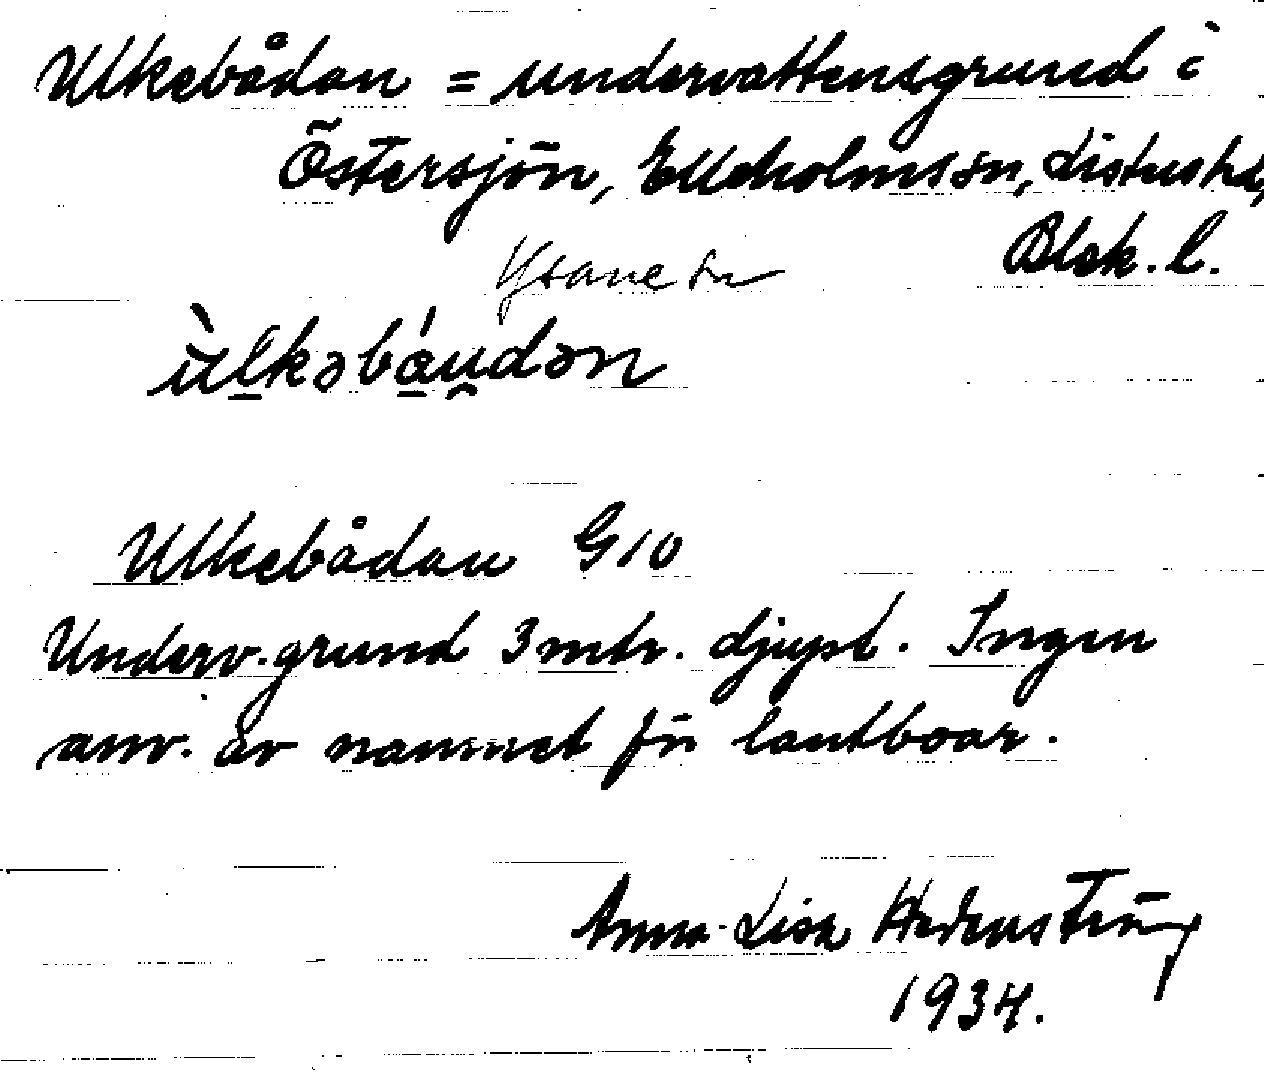 Ulkebådan = undervattensgrund i
Östersjön, Elleholms sn, Listers hd,
Blek. l.
Ysane sn
ùlkəbáu̯dən
Ulkebådan G10
Underv.grund 3 mtr. djupt. Ingen
anv. av namnet för lantboar.
Anna-Lisa
1934.